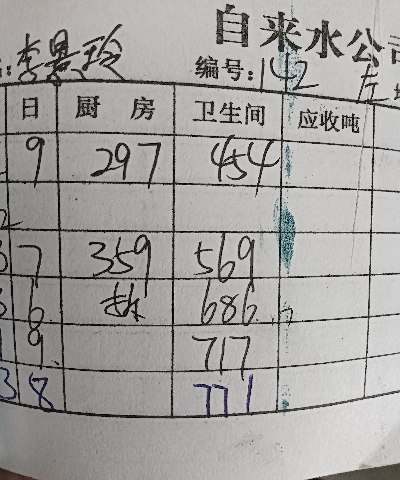 自来水公司
李景玲 编号: 142 左
日 厨房 卫生间 应收吨
9 297 454
2
3 7 359 569
6 拆 686
9 717
3 8 771